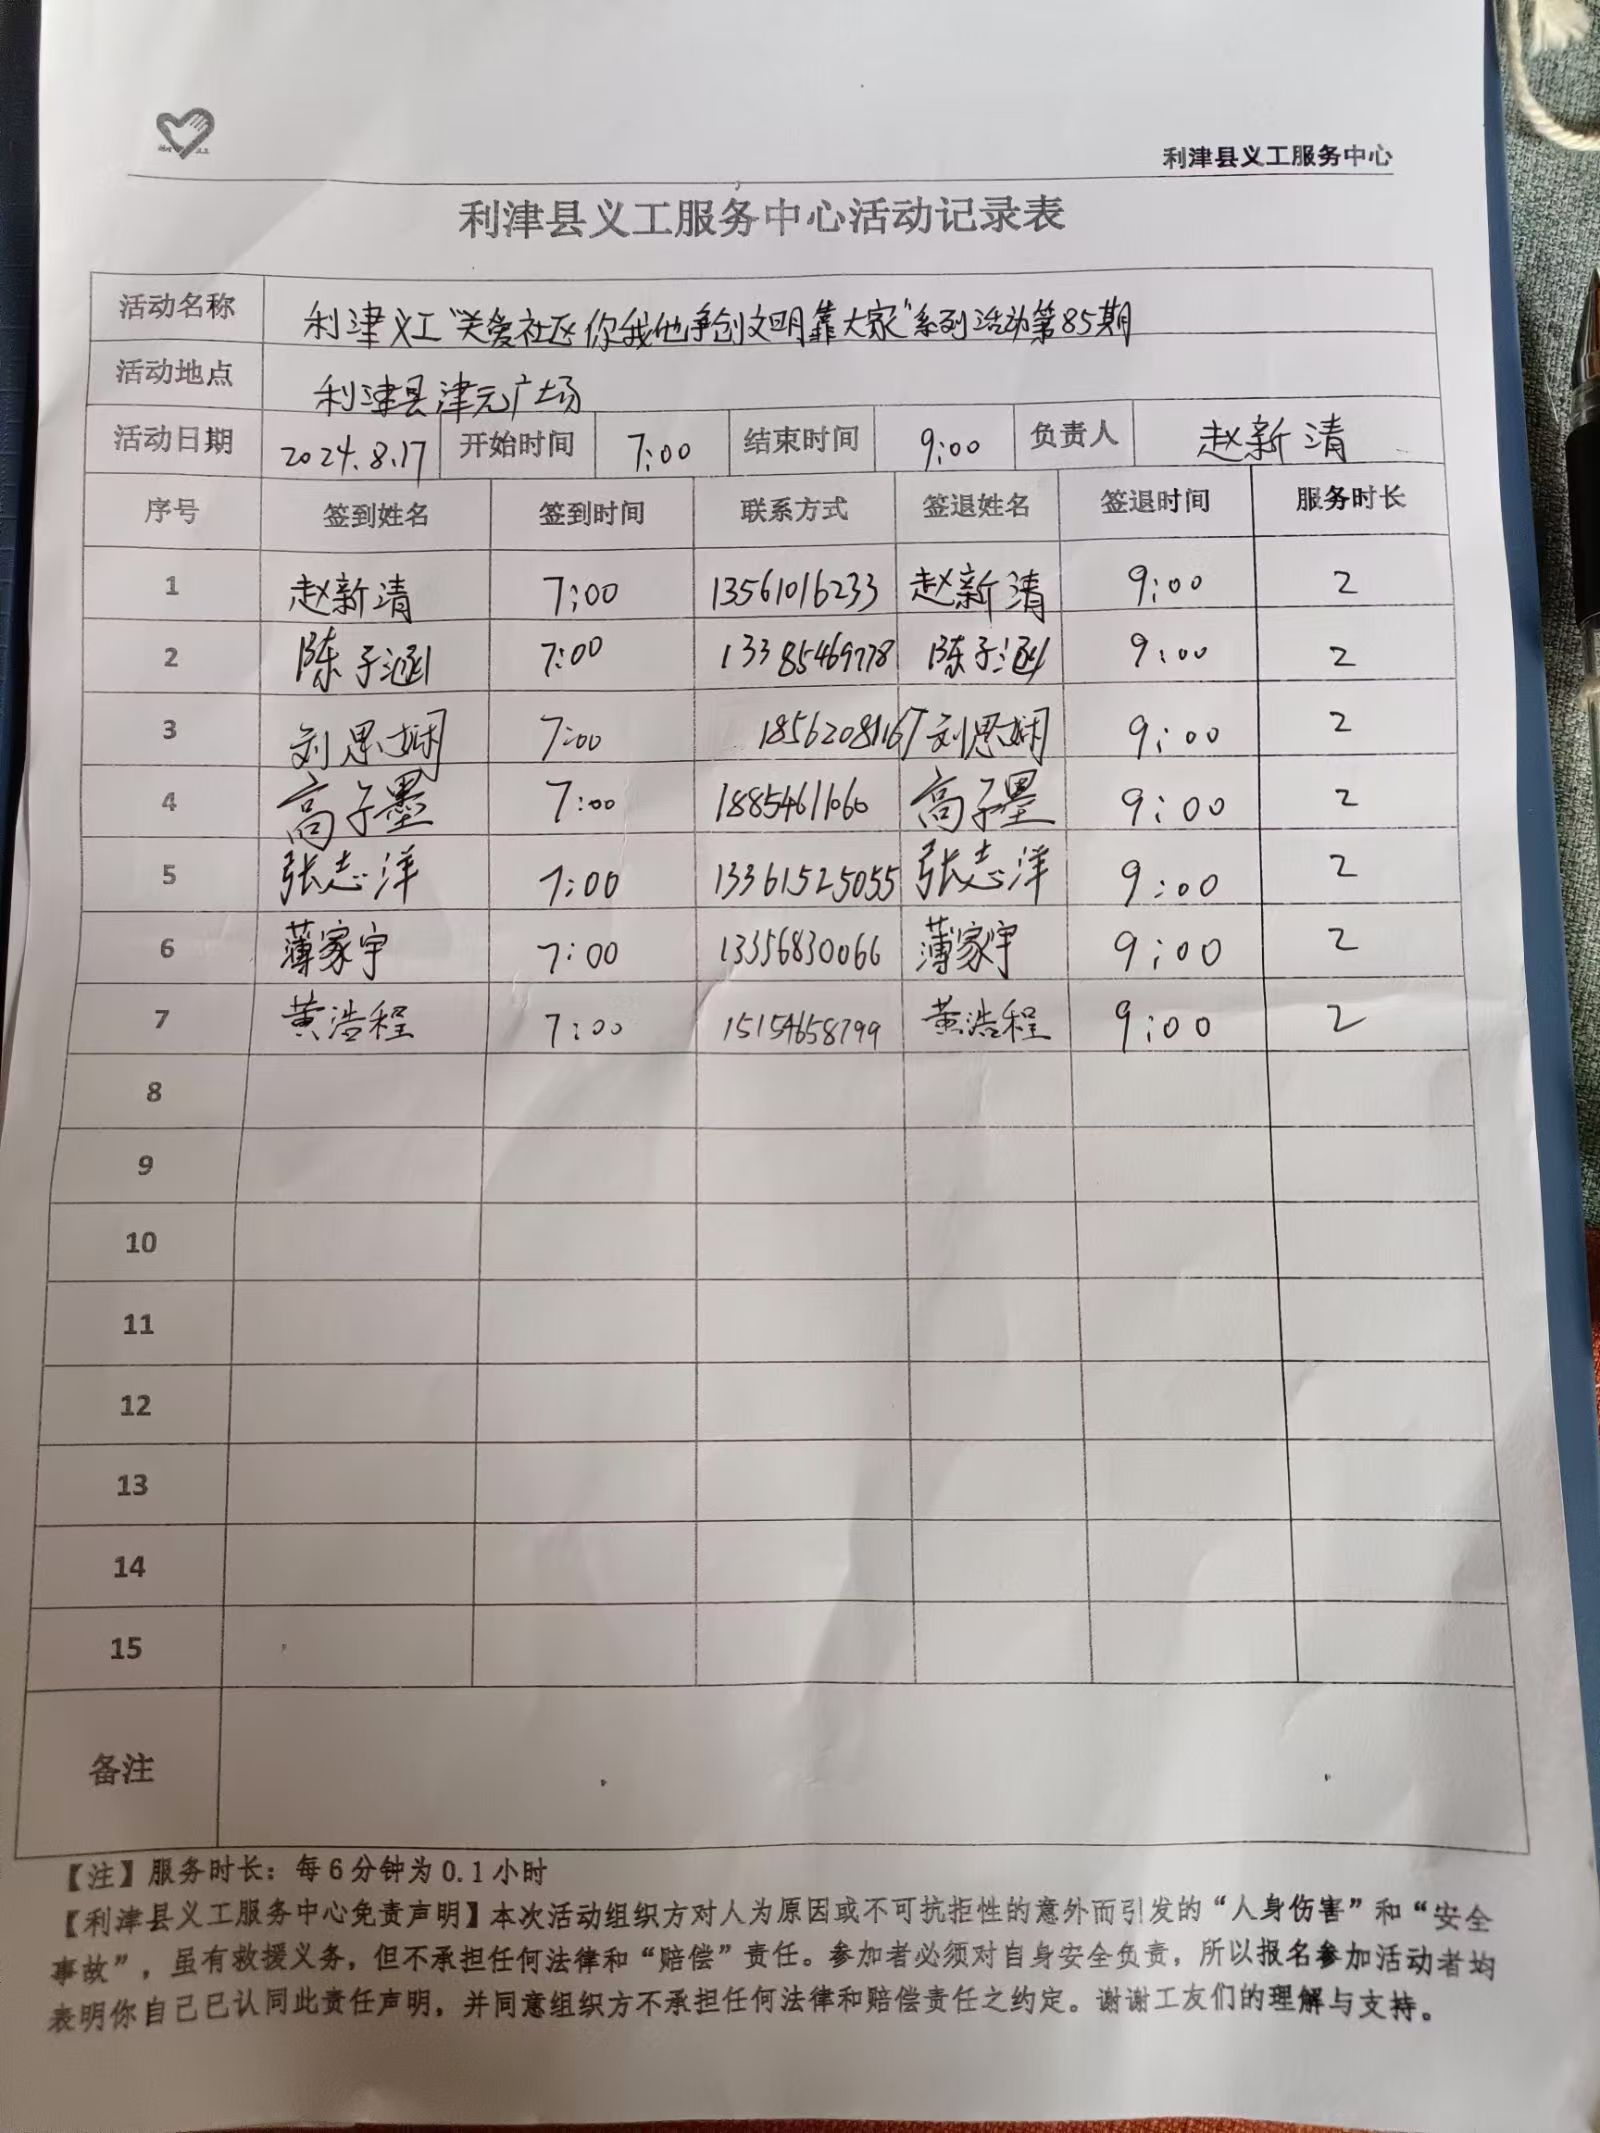 利津县义工服务中心
利津县义工服务中心活动记录表
活动名称 利津义工“关爱社区你我他争创文明靠大家”系列活动第85期
活动地点 利津县津元广场
活动日期 2024.8.17 开始时间 7:00 结束时间 9:00 负责人 赵新清
序号 签到姓名 签到时间 联系方式 签退姓名 签退时间 服务时长
1 赵新清 7:00 13561016233 赵新清 9:00 2
2 陈子涵 7:00 13385469778 陈子涵 9:00 2
3 刘思娴 7:00 18562081167 刘思娴 9:00 2
4 高子墨 7:00 18854611060 高子墨 9:00 2
5 张志洋 7:00 13361525055 张志洋 9:00 2
6 薄家宇 7:00 13356830066 薄家宇 9:00 2
7 黄浩程 7:00 15154658799 黄浩程 9:00 2
8
9
10
11
12
13
14
15
备注
【注】服务时长：每6分钟为0.1小时
【利津县义工服务中心免责声明】本次活动组织方对人为原因或不可抗拒性的意外而引发的“人身伤害”和“安全
事故”，虽有救援义务，但不承担任何法律和“赔偿”责任。参加者必须对自身安全负责，所以报名参加活动者均
表明你自己已认同此责任声明，并同意组织方不承担任何法律和赔偿责任之约定。谢谢工友们的理解与支持。